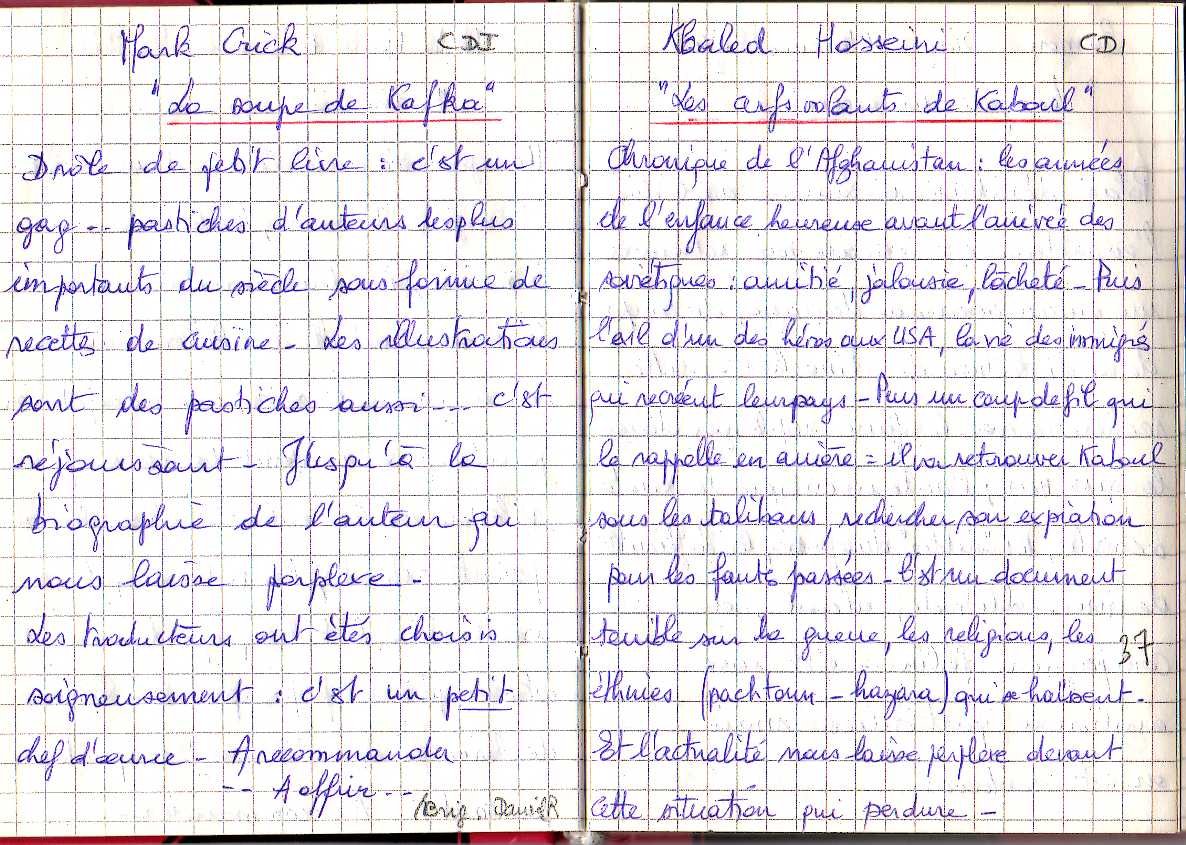 Mark Crick CDI
"La soupe de Kafka"
Drôle de petit livre : c'est un
gag -- pastiches d'auteurs les plus
importants du siècle sous forme de
recettes de cuisine - Les illustrations
sont des pastiches aussi --- c'est
réjouissant - Jusqu'à la
biographie de l'auteur qui
nous laisse perplexe -
Les traducteurs ont étés choisis
soigneusement : c'est un petit
chef d'œuvre - A recommander
-- A offrir --
Brig
37
Khaled Hosseini CDI
"Les cerfs volants de Kaboul"
Chronique de l'Afghanistan : les années
de l'enfance heureuse avant l'arrivée des
soviétiques : amitié, jalousie, lâcheté - Puis
l'exil d'un des héros aux USA, la vie des immigrés
qui recréent leur pays - Puis un coup de fil qui
le rappelle en arrière = il va retrouver Kaboul
sous les talibans, rechercher son expiation
pour les fautes passées - C'est un document
terrible sur la guerre, les religions, les
éthnies (pachtoun - hazara) qui se haïssent -
Et l'actualité nous laisse perplexe devant
cette situation qui perdure -